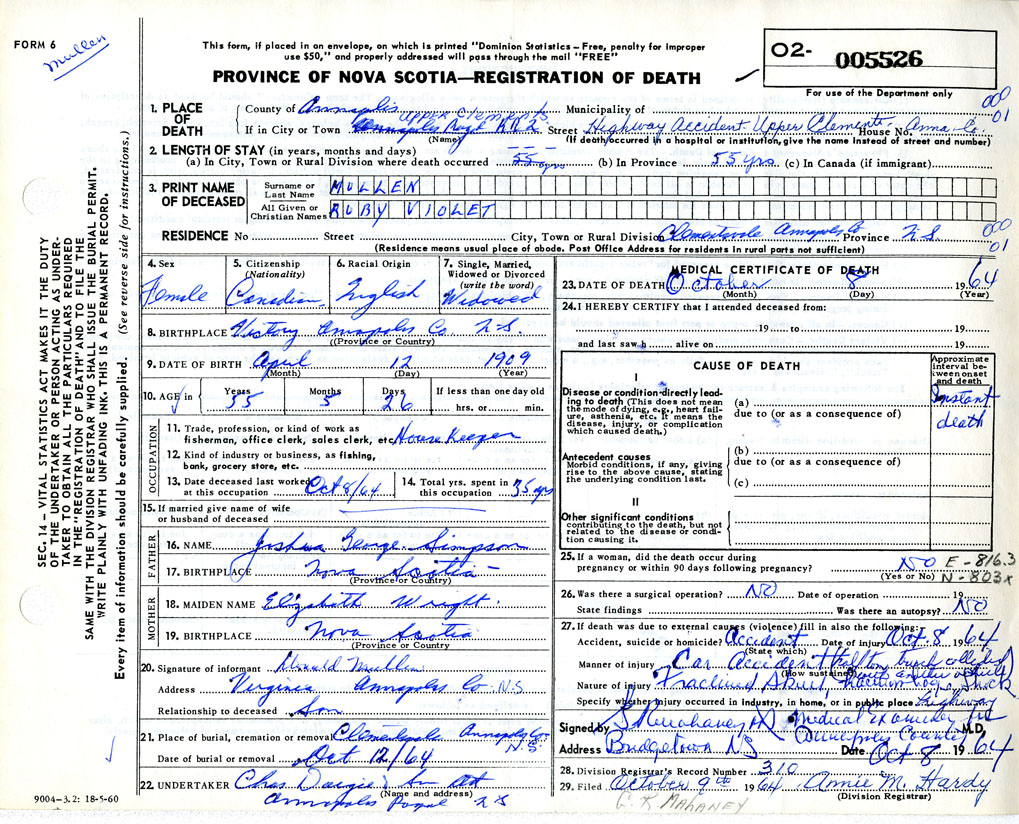 FORM 6
Mullen
This form, if placed in an envelope, on which is printed "Dominion Statistics – Free, penalty for improper
use $50," and properly addressed will pass through the mail "FREE"
PROVINCE OF NOVA SCOTIA—REGISTRATION OF DEATH
02- 005526
For use of the Department only
000
01
1. PLACE OF DEATH
County of Annapolis Municipality of
Upper Clements
If in City or Town Annapolis Royal R.R.2 Street Highway Accident Upper Clements House No. Anna Co.
(Name) (If death occurred in a hospital or institution, give the name instead of street and number)
2. LENGTH OF STAY (in years, months and days)
(a) In City, Town or Rural Division where death occurred 55 yrs (b) In Province 55 yrs. (c) In Canada (if immigrant)
3. PRINT NAME OF DECEASED
Surname or Last Name MULLEN
All Given or Christian Names RUBY VIOLET
RESIDENCE No Street City, Town or Rural Division Clementsvale Annapolis Co Province N.S
000
01
(Residence means usual place of abode. Post Office Address for residents in rural parts not sufficient)
4. Sex
Female
5. Citizenship (Nationality)
Canadian
6. Racial Origin
English
7. Single, Married, Widowed or Divorced (write the word)
Widowed
8. BIRTHPLACE Victory Annapolis Co N.S.
(Province or Country)
9. DATE OF BIRTH April 12 1909
(Month) (Day) (Year)
10. AGE in Years 55 Months 5 Days 26 If less than one day old
hrs. or min.
OCCUPATION
11. Trade, profession, or kind of work as
fisherman, office clerk, sales clerk, etc. House Keeper
12. Kind of industry or business, as fishing,
bank, grocery store, etc.
13. Date deceased last worked
at this occupation Oct 8/64
14. Total yrs. spent in
this occupation 35 yrs
15. If married give name of wife
or husband of deceased
FATHER
16. NAME Joshua George Simpson
17. BIRTHPLACE Nova Scotia
(Province or Country)
MOTHER
18. MAIDEN NAME Elizabeth Wright
19. BIRTHPLACE Nova Scotia
(Province or Country)
20. Signature of informant Donald Mullen
Address Virginia Annapolis Co. N.S
Relationship to deceased Son
21. Place of burial, cremation or removal Clementsvale Annapolis Co
N.S
Date of burial or removal Oct 12/64
22. UNDERTAKER Chas Dargie & Son Ltd
(Name and address)
Annapolis Royal N.S
9004-3.2: 18-5-60
MEDICAL CERTIFICATE OF DEATH
23. DATE OF DEATH October 8 1964
(Month) (Day) (Year)
24. I HEREBY CERTIFY that I attended deceased from:
19 to 19
and last saw h alive on 19
CAUSE OF DEATH
Approximate interval between onset and death
I
Disease or condition directly leading to death (This does not mean the mode of dying, e.g., heart failure, asthenia, etc. It means the disease, injury, or complication which caused death.)
(a)
due to (or as a consequence of)
Instant
death
Antecedent causes
Morbid conditions, if any, giving rise to the above cause, stating the underlying condition last.
(b)
due to (or as a consequence of)
(c)
II
Other significant conditions
contributing to the death, but not related to the disease or condition causing it.
25. If a woman, did the death occur during
pregnancy or within 90 days following pregnancy? NO
(Yes or No)
E - 816.3
N - 803x
26. Was there a surgical operation? NO Date of operation 19
State findings Was there an autopsy? NO
27. If death was due to external causes (violence) fill in also the following:
Accident, suicide or homicide? Accident Date of injury Oct. 8 1964
(State which)
Manner of injury Car Accident half ton truck collided
(How sustained) with another vehicle
Nature of injury Fractured Skull
Specify whether injury occurred in industry, in home, or in public place Highway
Signed by M.D.
Medical Examiner for
Annapolis County
Address Bridgetown NS Date Oct 8 1964
28. Division Registrar's Record Number 310
29. Filed October 9th 1964 Annie M. Hardy
(Division Registrar)
G. K. MAHANEY
SEC. 14 – VITAL STATISTICS ACT MAKES IT THE DUTY
OF THE UNDERTAKER OR PERSON ACTING AS UNDER-
TAKER TO OBTAIN ALL THE PARTICULARS REQUIRED
IN THE "REGISTRATION OF DEATH" AND TO FILE THE
SAME WITH THE DIVISION REGISTRAR WHO SHALL ISSUE THE BURIAL PERMIT.
WRITE PLAINLY WITH UNFADING INK. THIS IS A PERMANENT RECORD.
Every item of information should be carefully supplied. (See reverse side for instructions.)